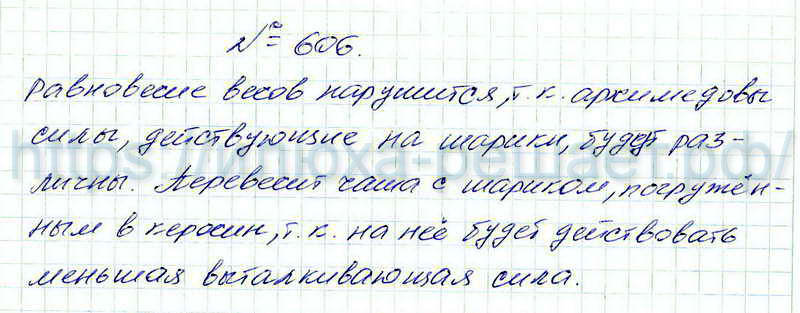 № 606.
Равновесие весов нарушится, т.к. архимедовы
силы, действующие на шарики, будут раз-
личны. Перевесит чаша с шариком, погружён-
ным в керосин, т.к. на неё будет действовать
меньшая выталкивающая сила.